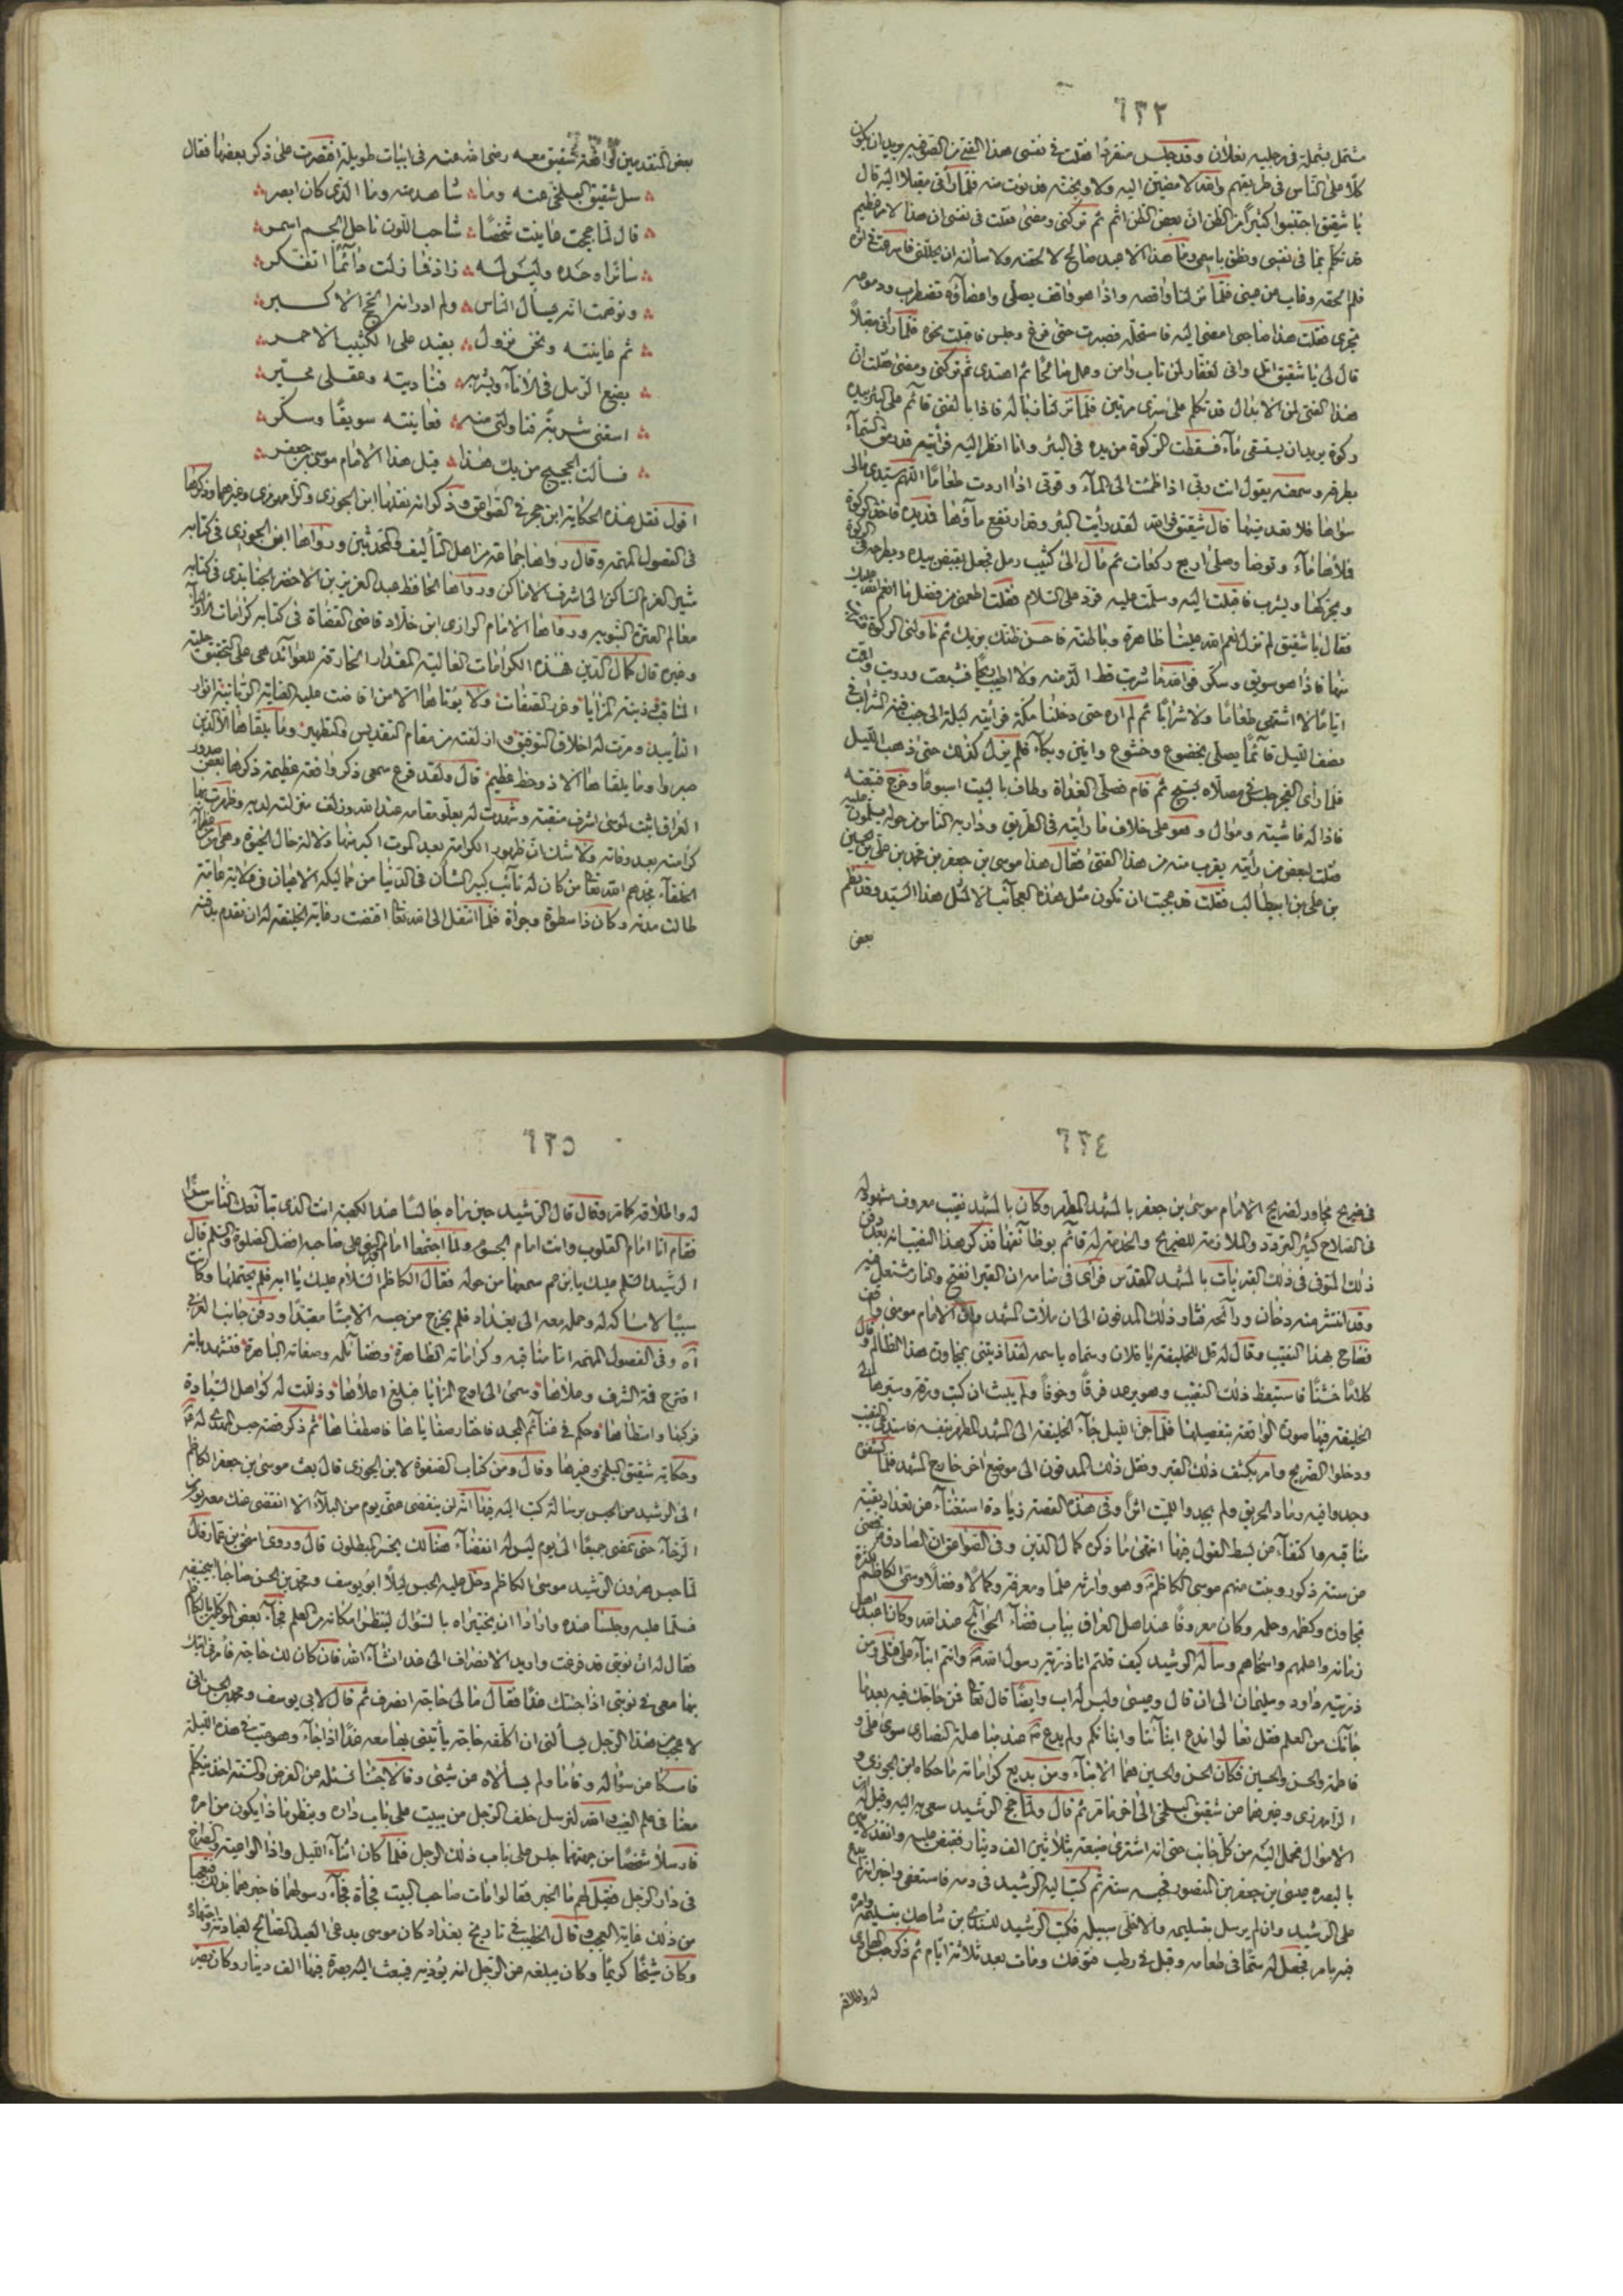 ٦٣٢
مشتمل بشملة في رجليه نعلان وقد جلس منفردا فقلت في نفسي هذا الفتى من الصوفية يريد ان يكون
كلا على الناس في طريقهم والله لامضين اليه ولاوبخنه فدنوت منه فلما رآني مقبلا اليه قال
يا شقيق اجتنبوا كثيرا من الظن ان بعض الظن اثم ثم تركني ومضى فقلت في نفسي ان هذا لامر عظيم
قد تكلم بما في نفسي ونطق باسمي وما هذا الا عبد صالح لالحقنه ولاسألنه ان يحللني فاسرعت في اثره
فلم الحقه وغاب عن عيني فلما نزلنا واقصه واذا هو واقف يصلي واعضاؤه تضطرب ودموعه
تجري فقلت هذا صاحبي امضي اليه فاستحله فصبرت حتى فرغ وجلس فاقبلت نحوه فلما رآني مقبلا
قال لي يا شقيق اتل واني لغفار لمن تاب وامن وعمل صالحا ثم اهتدى ثم تركني ومضى فقلت ان
هذا الفتى لمن الابدال قد تكلم على سري مرتين فلما نزلنا زبالة فاذا بالفتى قائم على البئر بيده
ركوة يريد ان يستقي ماء فسقطت الركوة من يده في البئر وانا انظر اليه فرأيته قد رمق السماء
بطرفه وسمعته يقول انت ربي اذا ظمئت الى الماء وقوتي اذا اردت طعاما اللهم سيدي مالي
سواها فلا تعدمنيها قال شقيق فوالله لقد رأيت البئر وقد ارتفع ماؤها فمد يده فاخذ الركوة
فملأها ماء وتوضأ وصلى اربع ركعات ثم مال الى كثيب رمل فجعل يقبض بيده ويطرحه في الركوة
ويحركها ويشرب فاقبلت اليه وسلمت عليه فرد علي السلام فقلت اطعمني من فضل ما انعم الله عليك
فقال يا شقيق لم تزل نعم الله علينا ظاهرة وباطنة فاحسن ظنك بربك ثم ناولني الركوة فشربت
منها فاذا هو سويق وسكر فوالله ما شربت قط الذ منه ولا اطيب ريحا فشبعت ورويت واقمت
اياما لا اشتهي طعاما ولا شرابا ثم لم اره حتى دخلنا مكة فرأيته ليلة الى جنب قبة الشراب في
نصف الليل قائما يصلي بخضوع وخشوع وانين وبكاء فلم يزل كذلك حتى ذهب الليل
فلما رأى الفجر جلس في مصلاه يسبح ثم قام فصلى الغداة وطاف بالبيت اسبوعا وخرج فتبعته
فاذا له غاشية وموال وهو على خلاف ما رأيته في الطريق ودار به الناس من حوله يسلمون عليه
فقلت لبعض من رأيته يقرب منه من هذا الفتى فقال هذا موسى بن جعفر بن محمد بن علي بن الحسين
بن علي بن ابي طالب فقلت قد عجبت ان تكون مثل هذه العجائب الا لمثل هذا السيد وقد نظم
بعض
بعض المتقدمين واقعة شقيق معه رضي الله عنه في ابيات طويلة اقتصرت على ذكر بعضها فقال
سل شقيق البلخي عنه وما شاهد منه وما الذي كان ابصر
قال لما حججت عاينت شخصا شاحب اللون ناحل الجسم اسمر
سائرا وحده وليس له زاد فما زلت دائما اتفكر
وتوهمت انه يسأل الناس ولم ادر انه الحج الاكبر
ثم عاينته ونحن نزول بفيد على الكثيب الاحمر
يضع الرمل في الاناء ويشربه فناديته وعقلي محير
اسقني شربة فناولني منه فعاينته سويقا وسكر
فسألت الحجيج من يك هذا قيل هذا الامام موسى بن جعفر
اقول نقل هذه الحكاية ابن حجر في الصواعق وذكر انه نقلها ابن الجوزي والرامهرمزي وغيرهما وذكرها
في الفصول المهمة وقال رواها جماعة من اهل التأليف والمحدثين ورواها ابن الجوزي في كتابه
مثير الغرم الساكن الى اشرف الاماكن ورواها الحافظ عبد العزيز بن الاخضر الجنابذي في كتابه
معالم العترة النبوية ورواها الامام الرازي ابن خلاد قاضي القضاة في كتابه كرامات الاولياء
وغيره قال كمال الدين هذه الكرامات العالية المقدار الخارقة للعوائد هي على التحقيق حلية
المناقب وزينة المزايا وغرر الصفات ولا يؤتاها الا من افاضت عليه العناية الربانية انوار
التأييد ومرت له اخلاف التوفيق وازلفته من مقام التقديس والتطهير وما يلقاها الا الذين
صبروا وما يلقاها الا ذو حظ عظيم قال ولقد قرع سمعي ذكر واقعة عظيمة ذكرها بعض صدور
العراق اثبتت لموسى اشرف منقبة وشهدت له بعلو مقامه عند الله وزلف منزلته لديه وظهرت بها
كرامته بعد وفاته ولا شك ان ظهور الكرامة بعد الموت اكبر منها دلالة حال الحياة وهي ان من عظماء
الخلفاء مجدهم الله تعالى من كان له نائب كبير الشأن في الدنيا من مماليكه الاعيان في ولاية عامة
طالت مدته وكان ذا سطوة وجراة فلما انتقل الى الله تعالى اقتضت رعاية الخليفة له ان تقدم بدفنه
٦٣٤
في ضريح مجاور لضريح الامام موسى بن جعفر بالمشهد المطهر وكان بالمشهد نقيب معروف مشهود له
في الصلاح كثير التردد والملازمة للضريح والخدمة له قائم بوظائفها فذكر هذا النقيب انه بعد دفن
ذلك المتوفى في ذلك القبر بات بالمشهد المقدس فرأى في منامه ان القبر انفتح والنار مشتعل فيه
وقد انتشر منه دخان ورائحة قتار ذلك المدفون الى ان ملأت المشهد وان الامام موسى واقف
فصاح بهذا النقيب وقال له قل للخليفة يا فلان وسماه باسمه لقد اذيتني بمجاورة هذا الظالم وقال
كلاما خشنا فاستيقظ ذلك النقيب وهو يرعد فرقا وخوفا ولم يلبث ان كتب ورقة وسيرها الى
الخليفة فيها صورة الواقعة بتفصيلها فلما جن الليل جاء الخليفة الى المشهد المطهر بنفسه فاستدعى النقيب
ودخلوا الضريح وامر بكشف ذلك القبر ونقل ذلك المدفون الى موضع اخر خارج المشهد فلما كشفوه
وجدوا فيه رماد الحريق ولم يجدوا للميت اثرا وفي هذه القصة زيادة استغناء عن تعداد بقية
مناقبه واكتفاء عن بسط القول فيها انتهى ما ذكره كمال الدين وفي الصواعق ان الصادق توفي
عن ستة ذكور وبنت منهم موسى الكاظم وهو وارثه علما ومعرفة وكمالا وفضلا وسمي الكاظم لكثرة
تجاوزه وكظمه وحلمه وكان معروفا عند اهل العراق بباب قضاء الحوائج عند الله وكان اعبد اهل
زمانه واعلمهم واسخاهم وسأله الرشيد كيف قلتم انا ذرية رسول الله وانتم ابناء علي فتلى ومن
ذريته داود وسليمان الى ان قال وعيسى وليس له اب وايضا قال تعالى فمن حاجك فيه بعد ما
جاءك من العلم فقل تعالوا ندع ابناءنا وابناءكم ولم يدع عند مباهلة النصارى سوى علي و
فاطمة والحسن والحسين فكان الحسن والحسين هما الابناء ومن بديع كراماته ما حكاه ابن الجوزي و
الرامهرمزي وغيرهما عن شقيق البلخي الى اخر ما مر ثم قال ولما حج الرشيد سعي به اليه وقيل له ان
الاموال تحمل اليه من كل جانب حتى انه اشترى ضيعة بثلاثين الف دينار فقبض عليه وانفذه لاميره
بالبصرة عيسى بن جعفر بن المنصور فحبسه سنة ثم كتب اليه الرشيد في دمه فاستعفى واخبر انه لم يدع
على الرشيد وان لم يرسل بتسليمه والا خلى سبيله فكتب الرشيد للسندي بن شاهك بتسليمه وامره
فيه بامر فجعل له سما في طعامه وقيل في رطب فتوعك ومات بعد ثلاثة ايام ثم ذكر حبس الهادي
له واطلاقه
٦٣٥
له واطلاقه كما مر فقال قال الرشيد حين رآه جالسا عند الكعبة انت الذي تبايعك الناس سرا
فقال انا امام القلوب وانت امام الجسوم ولما اجتمعا امام الوجه الشريف على صاحبه افضل الصلوة والسلام قال
الرشيد السلام عليك يا بن عم سمعها من حوله فقال الكاظم السلام عليك يا ابه فلم يحتملها وكانت
سببا لامساكه له وحمله معه الى بغداد فلم يخرج من حبسه الا ميتا مقيدا ودفن جانب الغربي
اه وفي الفصول المهمة اما مناقبه وكراماته الظاهرة وفضائله وصفاته الباهرة فتشهد بانه
افترع قمة الشرف وعلاها وسمى الى اوج المزايا فبلغ اعلاها وذللت له كواهل السيادة
فركبها وامتطاها وحكم في غنائم المجد فاختار صفاياها فاصطفاها ثم ذكر قصة حبس المهدي له
وحكاية شقيق البلخي وغيرها وقال ومن كتاب الصفوة لابن الجوزي قال بعث موسى بن جعفر الكاظم
الى الرشيد من الحبس برسالة كتب اليه فيها انه لن ينقضي عني يوم من البلاء الا انقضى عنك معه يوم من
الرخاء حتى نمضي جميعا الى يوم ليس له انقضاء هنالك يخسر المبطلون قال وروى اسحق بن عمار قال
لما حبس هرون الرشيد موسى الكاظم دخل عليه الحبس ليلا ابو يوسف ومحمد بن الحسن صاحبا ابي حنيفة
فسلما عليه وجلسا عنده وارادا ان يختبراه بالسؤال لينظرا مكانه من العلم فجاء بعض الموكلين بالكاظم
فقال له ان نوبتي قد فرغت واريد الانصراف الى غد انشاء الله فان كان لك حاجة فأمرني اتيك
بها معي في نوبتي اذا جئتك غدا فقال مالي حاجة انصرف ثم قال لابي يوسف ومحمد بن الحسن اني
لاعجب من هذا الرجل يسألني ان اكلفه حاجة يأتيني بها معه غدا اذا جاء وهو ميت في هذه الليلة
فامسكا من سؤاله وقاما ولم يسألاه عن شيء وقالا جئنا نسئله عن الفرض والسنة اخذ يتكلم
معنا في علم الغيب والله لنرسل خلف الرجل من يبيت على باب داره وينظر ماذا يكون من امره
فارسلا شخصا من جهتهما جلس على باب ذلك الرجل فلما كان اثناء الليل واذا الواعية والصراخ
في دار الرجل فقيل لهم ما الخبر فقالوا مات صاحب البيت فجأة فجاء رسولهما فاخبرهما بذلك فتعجبا
من ذلك غاية العجب وقال الخطيب في تاريخ بغداد كان موسى يدعى العبد الصالح لعبادته واجتهاده
وكان سخيا كريما وكان يبلغه عن الرجل انه يؤذيه فيبعث اليه بصرة فيها الف دينار وكان يصر